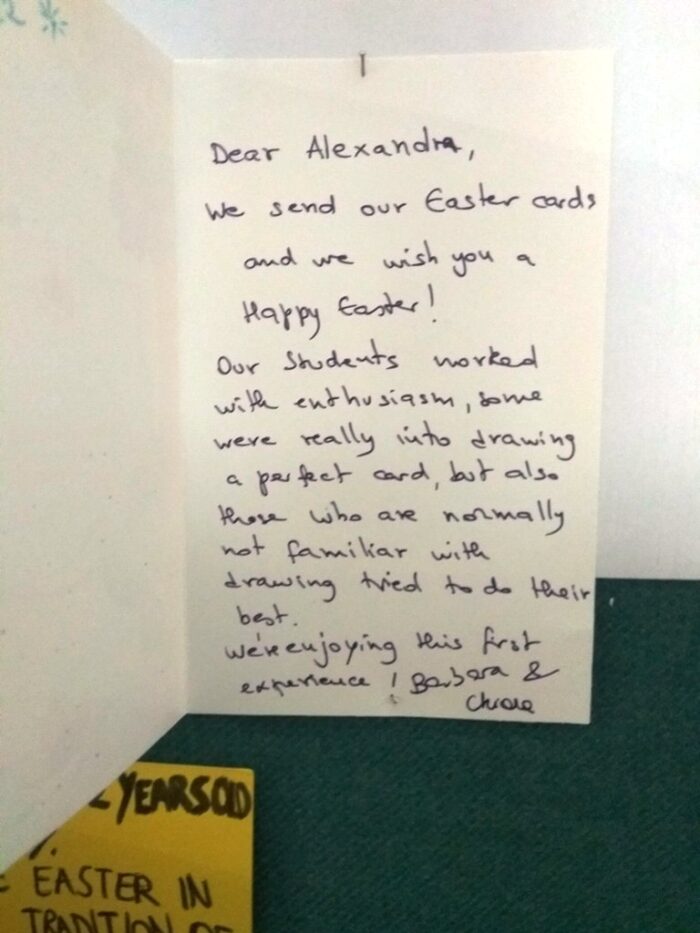 Dear Alexandra,
We send our Easter cards
and we wish you a
Happy Easter!
Our Students worked
with enthusiasm, some
were really into drawing
a perfect card, but also
those who are normally
not familiar with
drawing tried to do their
best.
We're enjoying this first
experience! Barbara &
Chiara
YEARS OLD
EASTER IN
TRADITION OF